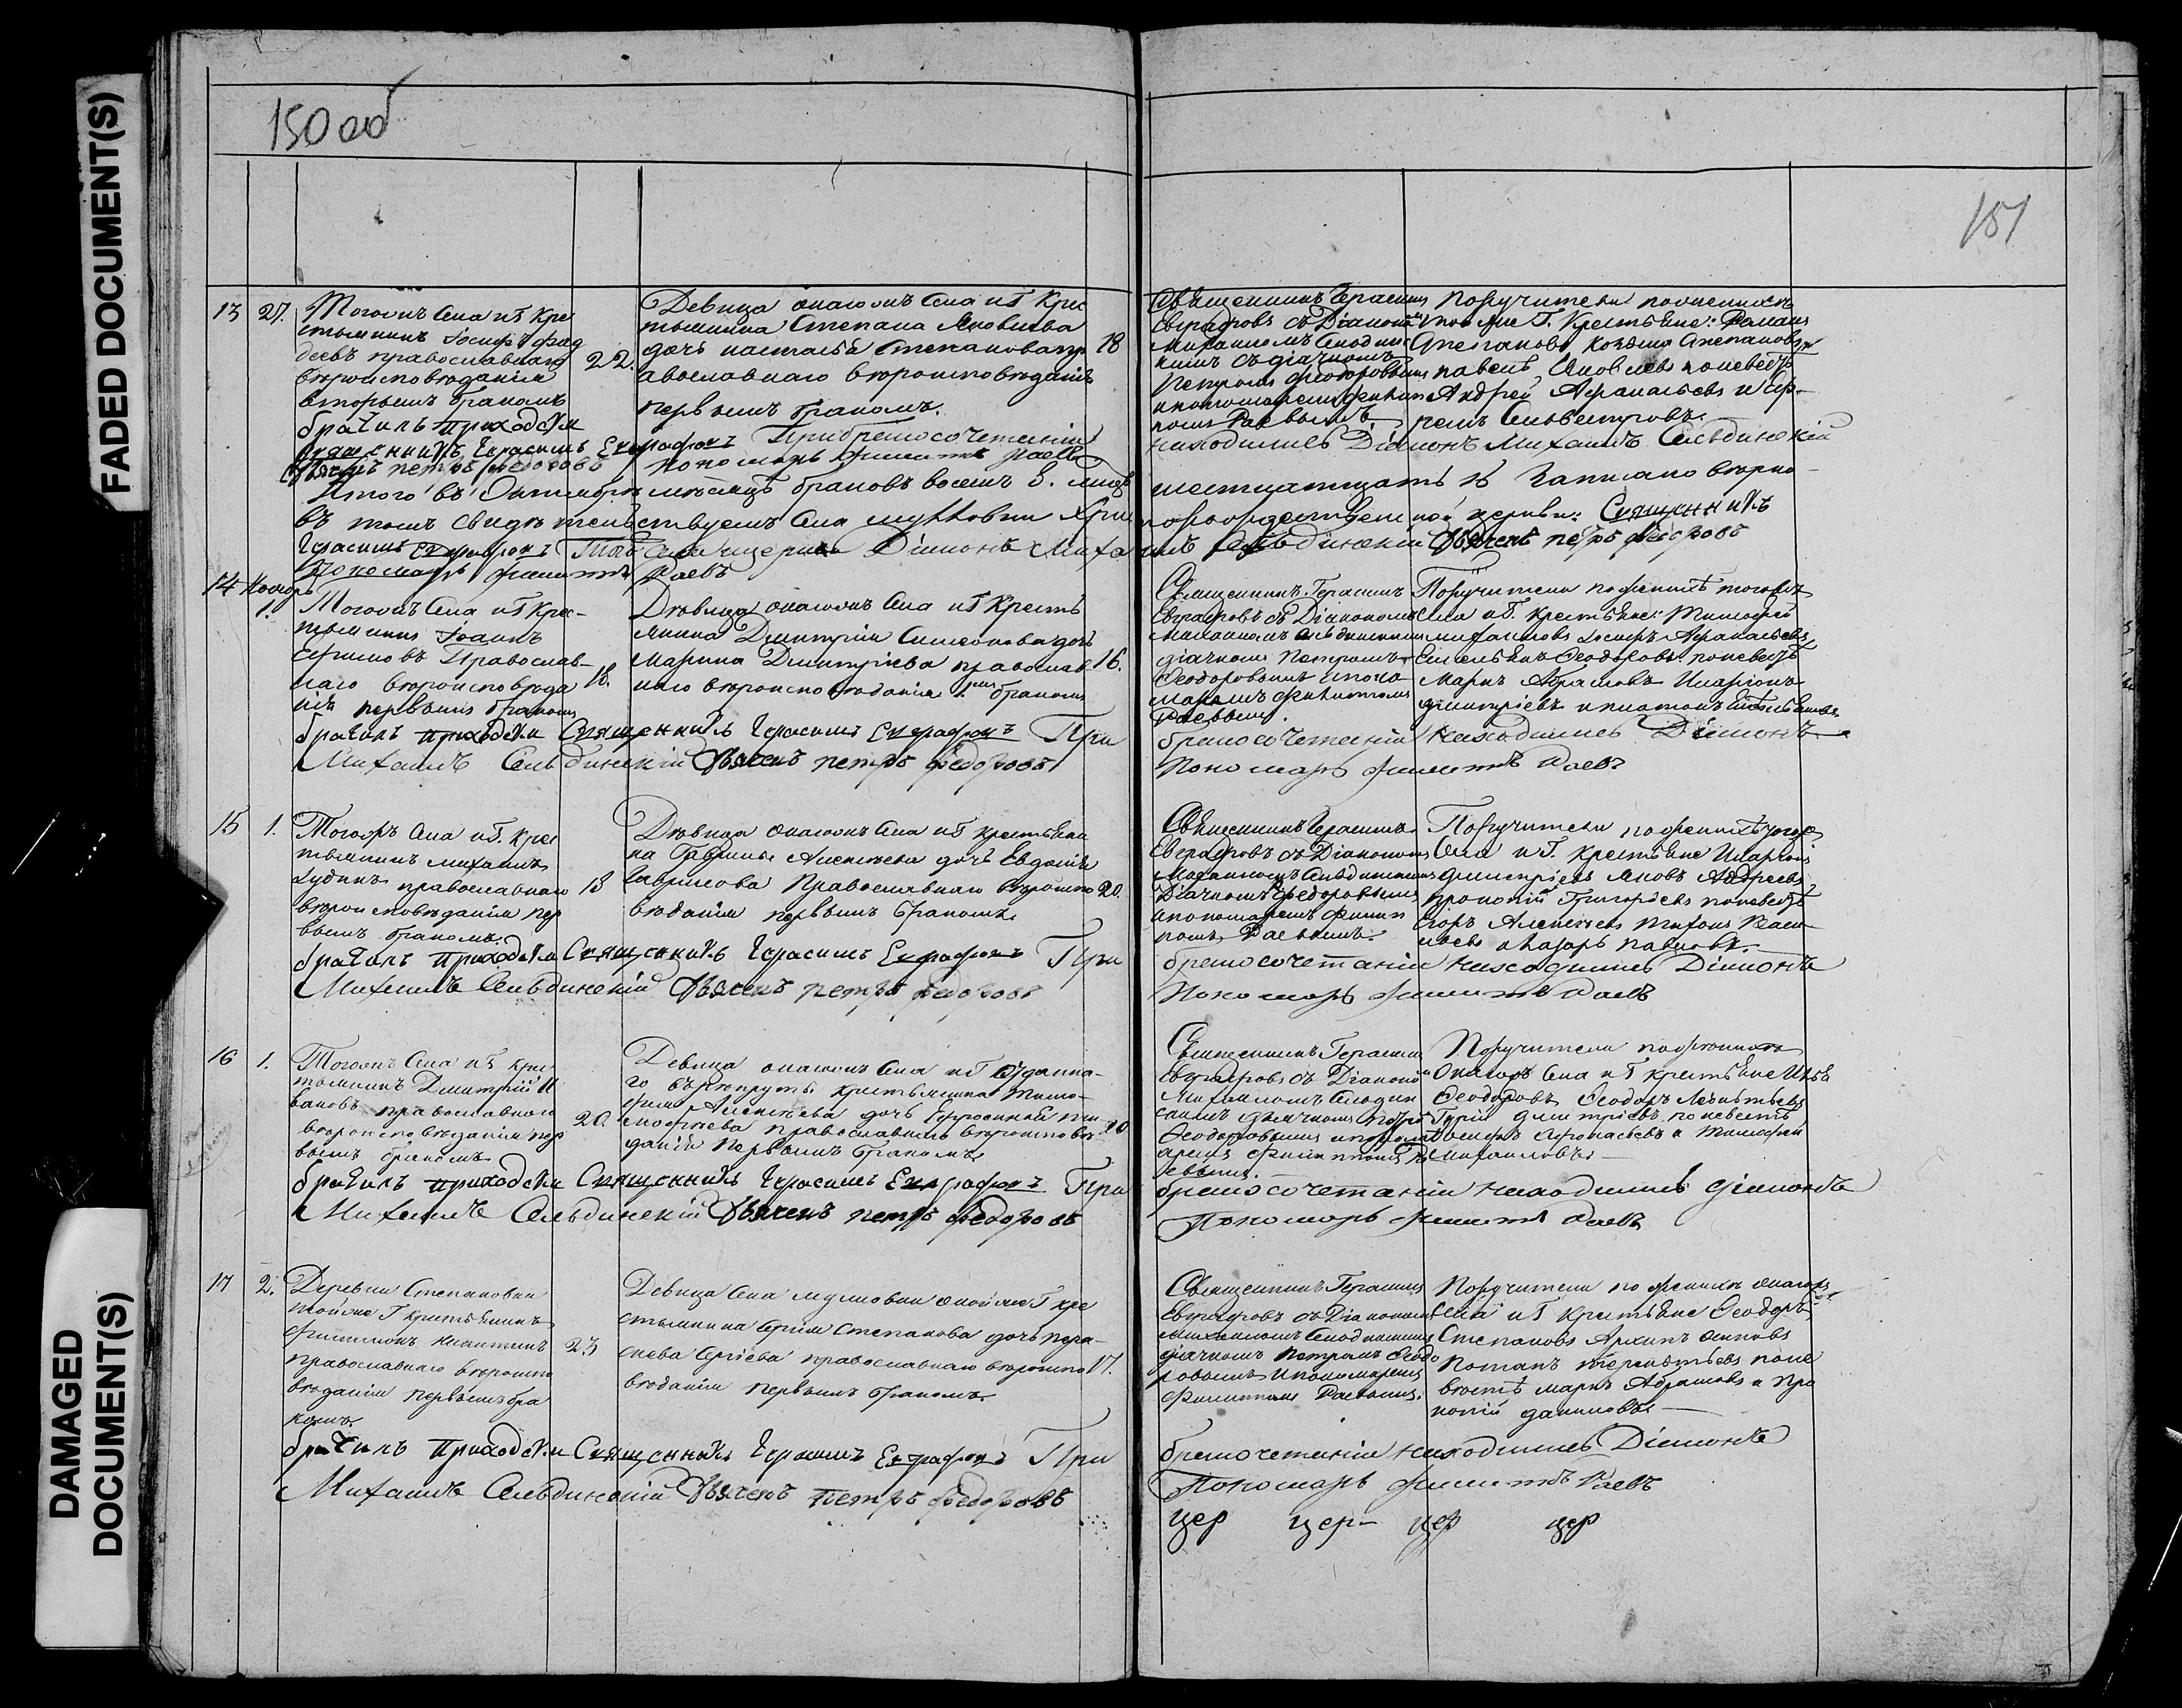 FADED DOCUMENT(S)
DAMAGED
DOCUMENT(S)
150 об
151
13 27.
Тогожъ села иГ Кре
стьянинъ Іосифъ Фад
деевъ православнаго 22.
вѣроисповѣданія
вторымъ бракомъ
Девица онагожъ села иГ Крес
тьянина Степана Яковлева
дочь Настасья Степанова пр 18
авославнаго вѣроисповѣданія
первымъ бракомъ.
Священникъ Герасимъ
Евграфовъ съ Діакономъ
Михаиломъ Сельдинс
кимъ съ дiачкомъ
Петромъ Феодоровымъ
и пономаремъ Филип
помъ Раевымъ.
Поручители по женихѣ
тояже Г. Крестьяне: Романъ
Степановъ Козьма Степановъ
Павелъ Яковлевъ по невѣстѣ
Андрей Афанасьевъ и
Сильвестровъ.
бракъ приходски
священникъ Герасимъ Евграфовъ При бракосочетаніи
находились Діаконъ Михаилъ Сельдинскій
Дьячекъ Петръ Федоровъ Пономарь Филиппъ Раевъ
Итого въ Октябрѣ мѣсяцѣ браковъ восемь 8. лицъ
шестнатцать 16 Записано вѣрно
въ томъ свидѣтельствуемъ села
рождественской церкви: Священникъ
Герасимъ Евграфовъ Діаконъ Михаилъ Сельдинскій Дьячекъ Петръ Федоровъ
Пономарь Филиппъ Раевъ
14 Ноябрь
1.
Тогожъ села иГ Крес-
тьянинъ Іоаннъ
Ефимовъ Православ-
наго вѣроисповѣда 18.
нія первымъ бракомъ
Дѣвица онагожъ села иГ Кресть
янина Димитрія Симеонова дочь
Марина Димитріева православ 16.
наго вѣроисповѣданія 1мъ бракомъ
Священникъ Герасимъ
Евграфовъ съ Діакономъ
Михаиломъ Сельдинскимъ
діачкомъ Петромъ
Феодоровымъ и поно
маремъ Филиппомъ
Раевымъ.
Поручители по женихѣ тогожъ
села иГ. крестьяне: Тимофей
Михайловъ Іосифъ Афанасьевъ
Емельянъ Феодоровъ по невѣстѣ
Маркъ Абрамовъ Иларіонъ
Дмитріевъ и
бракъ приходски Священникъ Герасимъ Евграфовъ При
бракосочетаніи находились Діаконъ
Михаилъ Сельдинскій Дьячекъ Петръ Федоровъ
Пономарь Филиппъ Раевъ
15 1.
Тогожъ села иГ. Крес
тьянинъ Михаилъ
православнаго 18
вѣроисповѣданія пер
вымъ бракомъ.
Дѣвица онагожъ села иГ Крестьяни
на Гаврилы Алексѣева дочь Евдокія
Гаврилова Православнаго вѣроиспо 20.
вѣданія первымъ бракомъ.
Священникъ Герасимъ
Евграфовъ съ Діакономъ
Михаиломъ Сельдинскимъ
Діачкомъ Федоровымъ
и пономаремъ Филип
помъ Раевымъ.
Поручители по женихѣ тогожъ
села иГ. крестьяне Иларіонъ
Димитріевъ Яковъ Андреевъ
Прокопій Григорьевъ по невѣстѣ
Егоръ Алексѣевъ Тихонъ Васи-
льевъ и Лазарь Павловъ.
бракъ приходски Священникъ Герасимъ Евграфовъ При
бракосочетаніи находились Діаконъ
Михаилъ Сельдинскій Дьячекъ Петръ Федоровъ
Пономарь Филиппъ Раевъ
16 1.
Тогожъ села иГ Крес
тьянинъ Дмитрій И
вановъ православнаго
вѣроисповѣданія пер 20.
вымъ бракомъ
Девица онагожъ села иГ отданна-
го въ рекруты крестьянина Тимо-
фея Алексѣева дочь Ефросинья Ти
мофѣева православнаго вѣроисповѣ 20
данія первымъ бракомъ
Священникъ Герасимъ
Евграфовъ съ Діакономъ
Михаиломъ Сельдин
скимъ дьячкомъ Петромъ
Феодоровымъ и поном
аремъ Филиппомъ Ра
евымъ.
Поручители по женихѣ
онагожъ села иГ крестьяне Илья
Феодоровъ Феодоръ Леонтьевъ
Гурій Дмитріевъ по невестѣ
Іосифъ Афонасьевъ и Тимофей
Михайловъ.
бракъ приходски Священникъ Герасимъ Евграфовъ При
бракосочетаніи находились Діаконъ
Михаилъ Сельдинскій Дьячекъ Петръ Федоровъ
Пономарь Филиппъ Раевъ
17 2.
Деревни Степановки
тойже Г крестьянинъ
Филимонъ 23
православнаго вѣроиспо
вѣданія первымъ бра
комъ.
Девица села онойже Г кре
стьянина Сергія Степанова дочь Пара-
скева Сергіева православнаго вѣроиспо 17.
вѣданія первымъ бракомъ.
Священникъ Герасимъ
Евграфовъ съ Діакономъ
Михаиломъ Сельдинскимъ
діачкомъ Петромъ Феодо
ровымъ и пономаремъ
Филиппомъ Раевымъ.
Поручители по женихѣ онагожъ
села иГ Крестьяне Феодоръ
Степановъ Архипъ Осиповъ
Потапъ Терентьевъ по не
вѣстѣ Маркъ Абрамовъ и Про
копій Даниловъ
бракъ приходски Священникъ Герасимъ Евграфовъ При
бракочетаніи находились Діаконъ
Михаилъ Сельдинскій Дьячекъ Петръ Федоровъ
Пономарь Филиппъ Раевъ
цер цер- цер цер